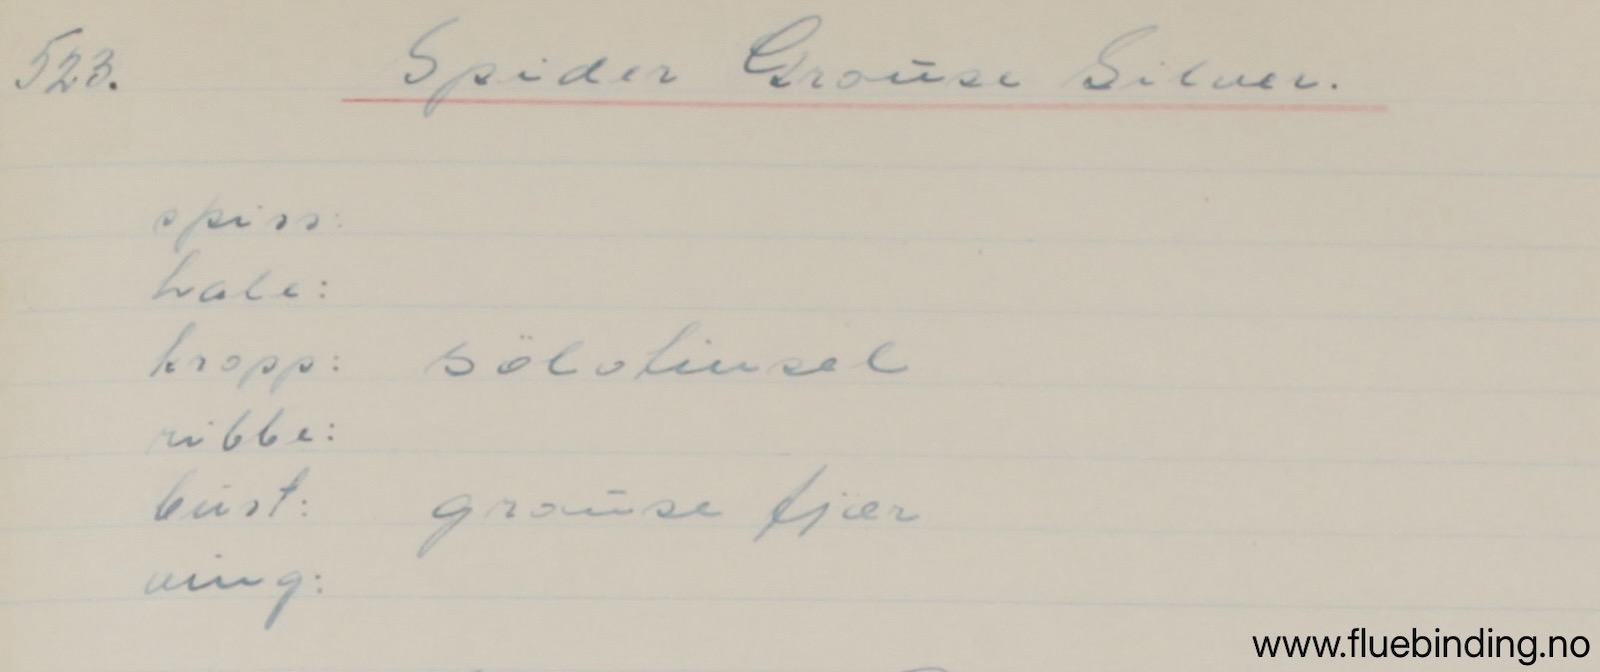 523. Spider Grouse Silver.
spiss:
hale:
kropp: sölvtinsel
ribbe:
bust: grouse fjær
ving:
www.fluebinding.no